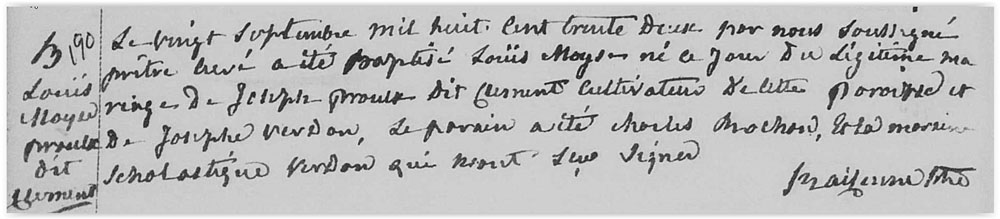 B/90
Louis
Moyse
proulx
dit
Clement
Le vingt Septembre mil huit Cent trente Deux par nous Soussigné
prêtre Curé a été Baptisé Louis Moyse né ce Jour du Légitime ma
riage De Joseph proulx Dit Clement Cultivateur De Cette Paroisse et
De Josephe Verdon, Le parain a été charles Rochon, Et la maraine
Scholastique Verdon qui n'ont Sçu Signer